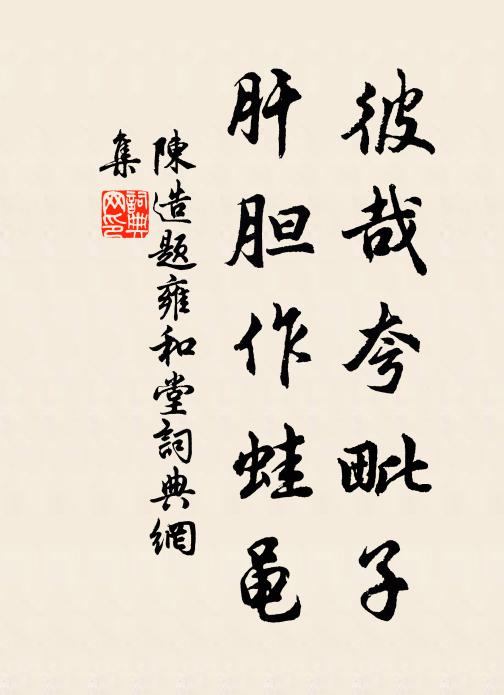 彼哉夸毗子
肝胆作蛙黾
陳造題雍和堂詞典網
集
詞典网印